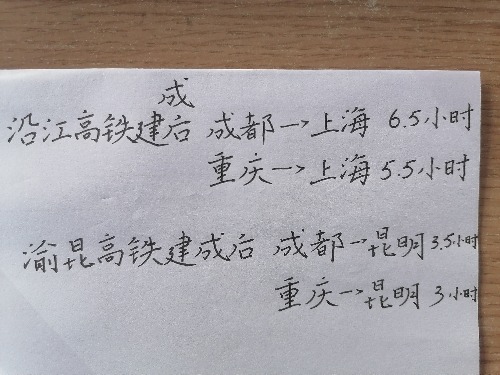 沿江高铁建成后 成都→上海 6.5小时
重庆→上海 5.5小时
渝昆高铁建成后 成都→昆明 3.5小时
重庆→昆明 3小时